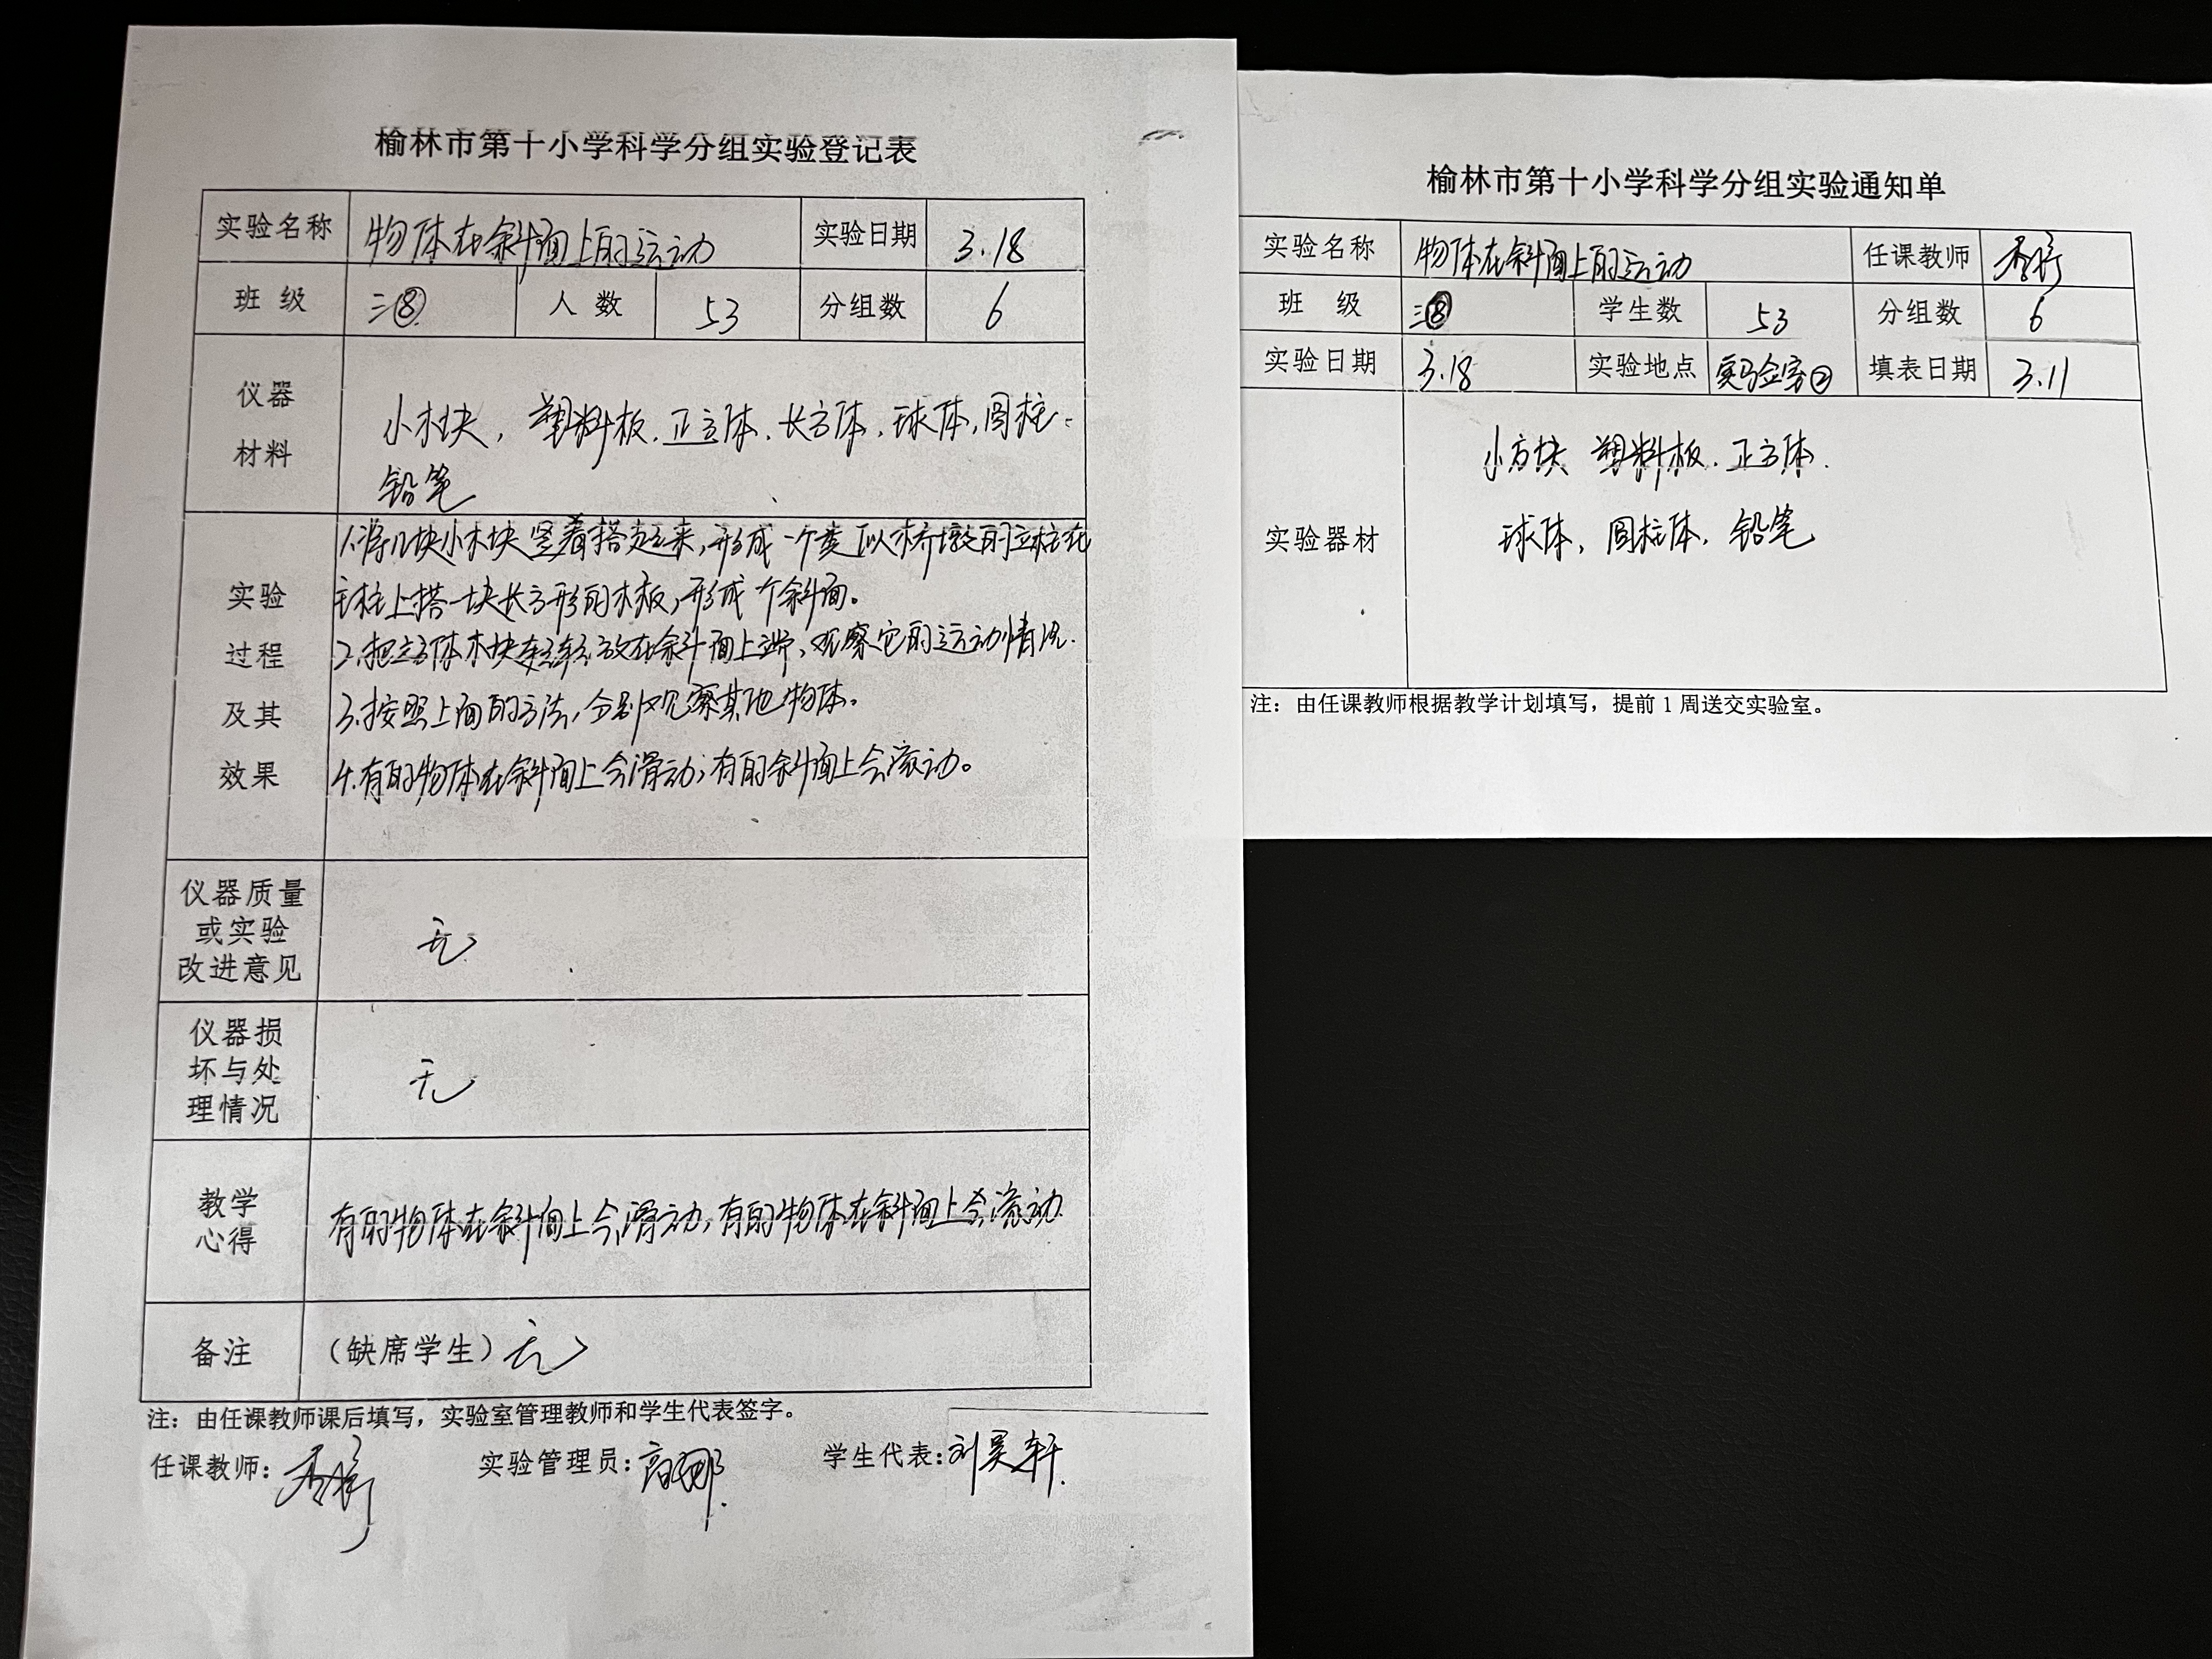 榆林市第十小学科学分组实验登记表
实验名称 物体在斜面上的运动 实验日期 3.18
班级 三⑧ 人数 53 分组数 6
仪器
材料
小木块，塑料板、正方体、长方体、球体，圆柱
铅笔
实验
过程
及其
效果
1.将几块小木块竖着搭起来，形成一个类似桥墩的立柱在
立柱上搭一块长方形的木板，形成一个斜面。
2.把立方体木块轻轻放在斜面上端，观察它的运动情况.
3.按照上面的方法，分别观察其他物体。
4.有的物体在斜面上会滑动；有的斜面上会滚动。
仪器质量
或实验
改进意见
无
仪器损
坏与处
理情况
无
教学
心得
有的物体在斜面上会滑动，有的物体在斜面上会滚动
备注 （缺席学生）无
注：由任课教师课后填写，实验室管理教师和学生代表签字。
任课教师： 实验管理员：高娜. 学生代表：刘昊轩.
榆林市第十小学科学分组实验通知单
实验名称 物体在斜面上的运动 任课教师
班级 三⑧ 学生数 53 分组数 6
实验日期 3.18 实验地点 实验室② 填表日期 3.11
实验器材
小方块 塑料板. 正方体.
球体，圆柱体，铅笔
注：由任课教师根据教学计划填写，提前1周送交实验室。